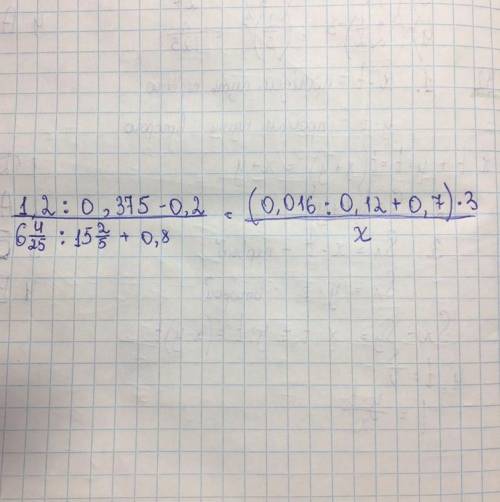 1,2 : 0,375 - 0,2 / 6 4/25 : 15 2/5 + 0,8 = (0,016 : 0,12 + 0,7) · 3 / x